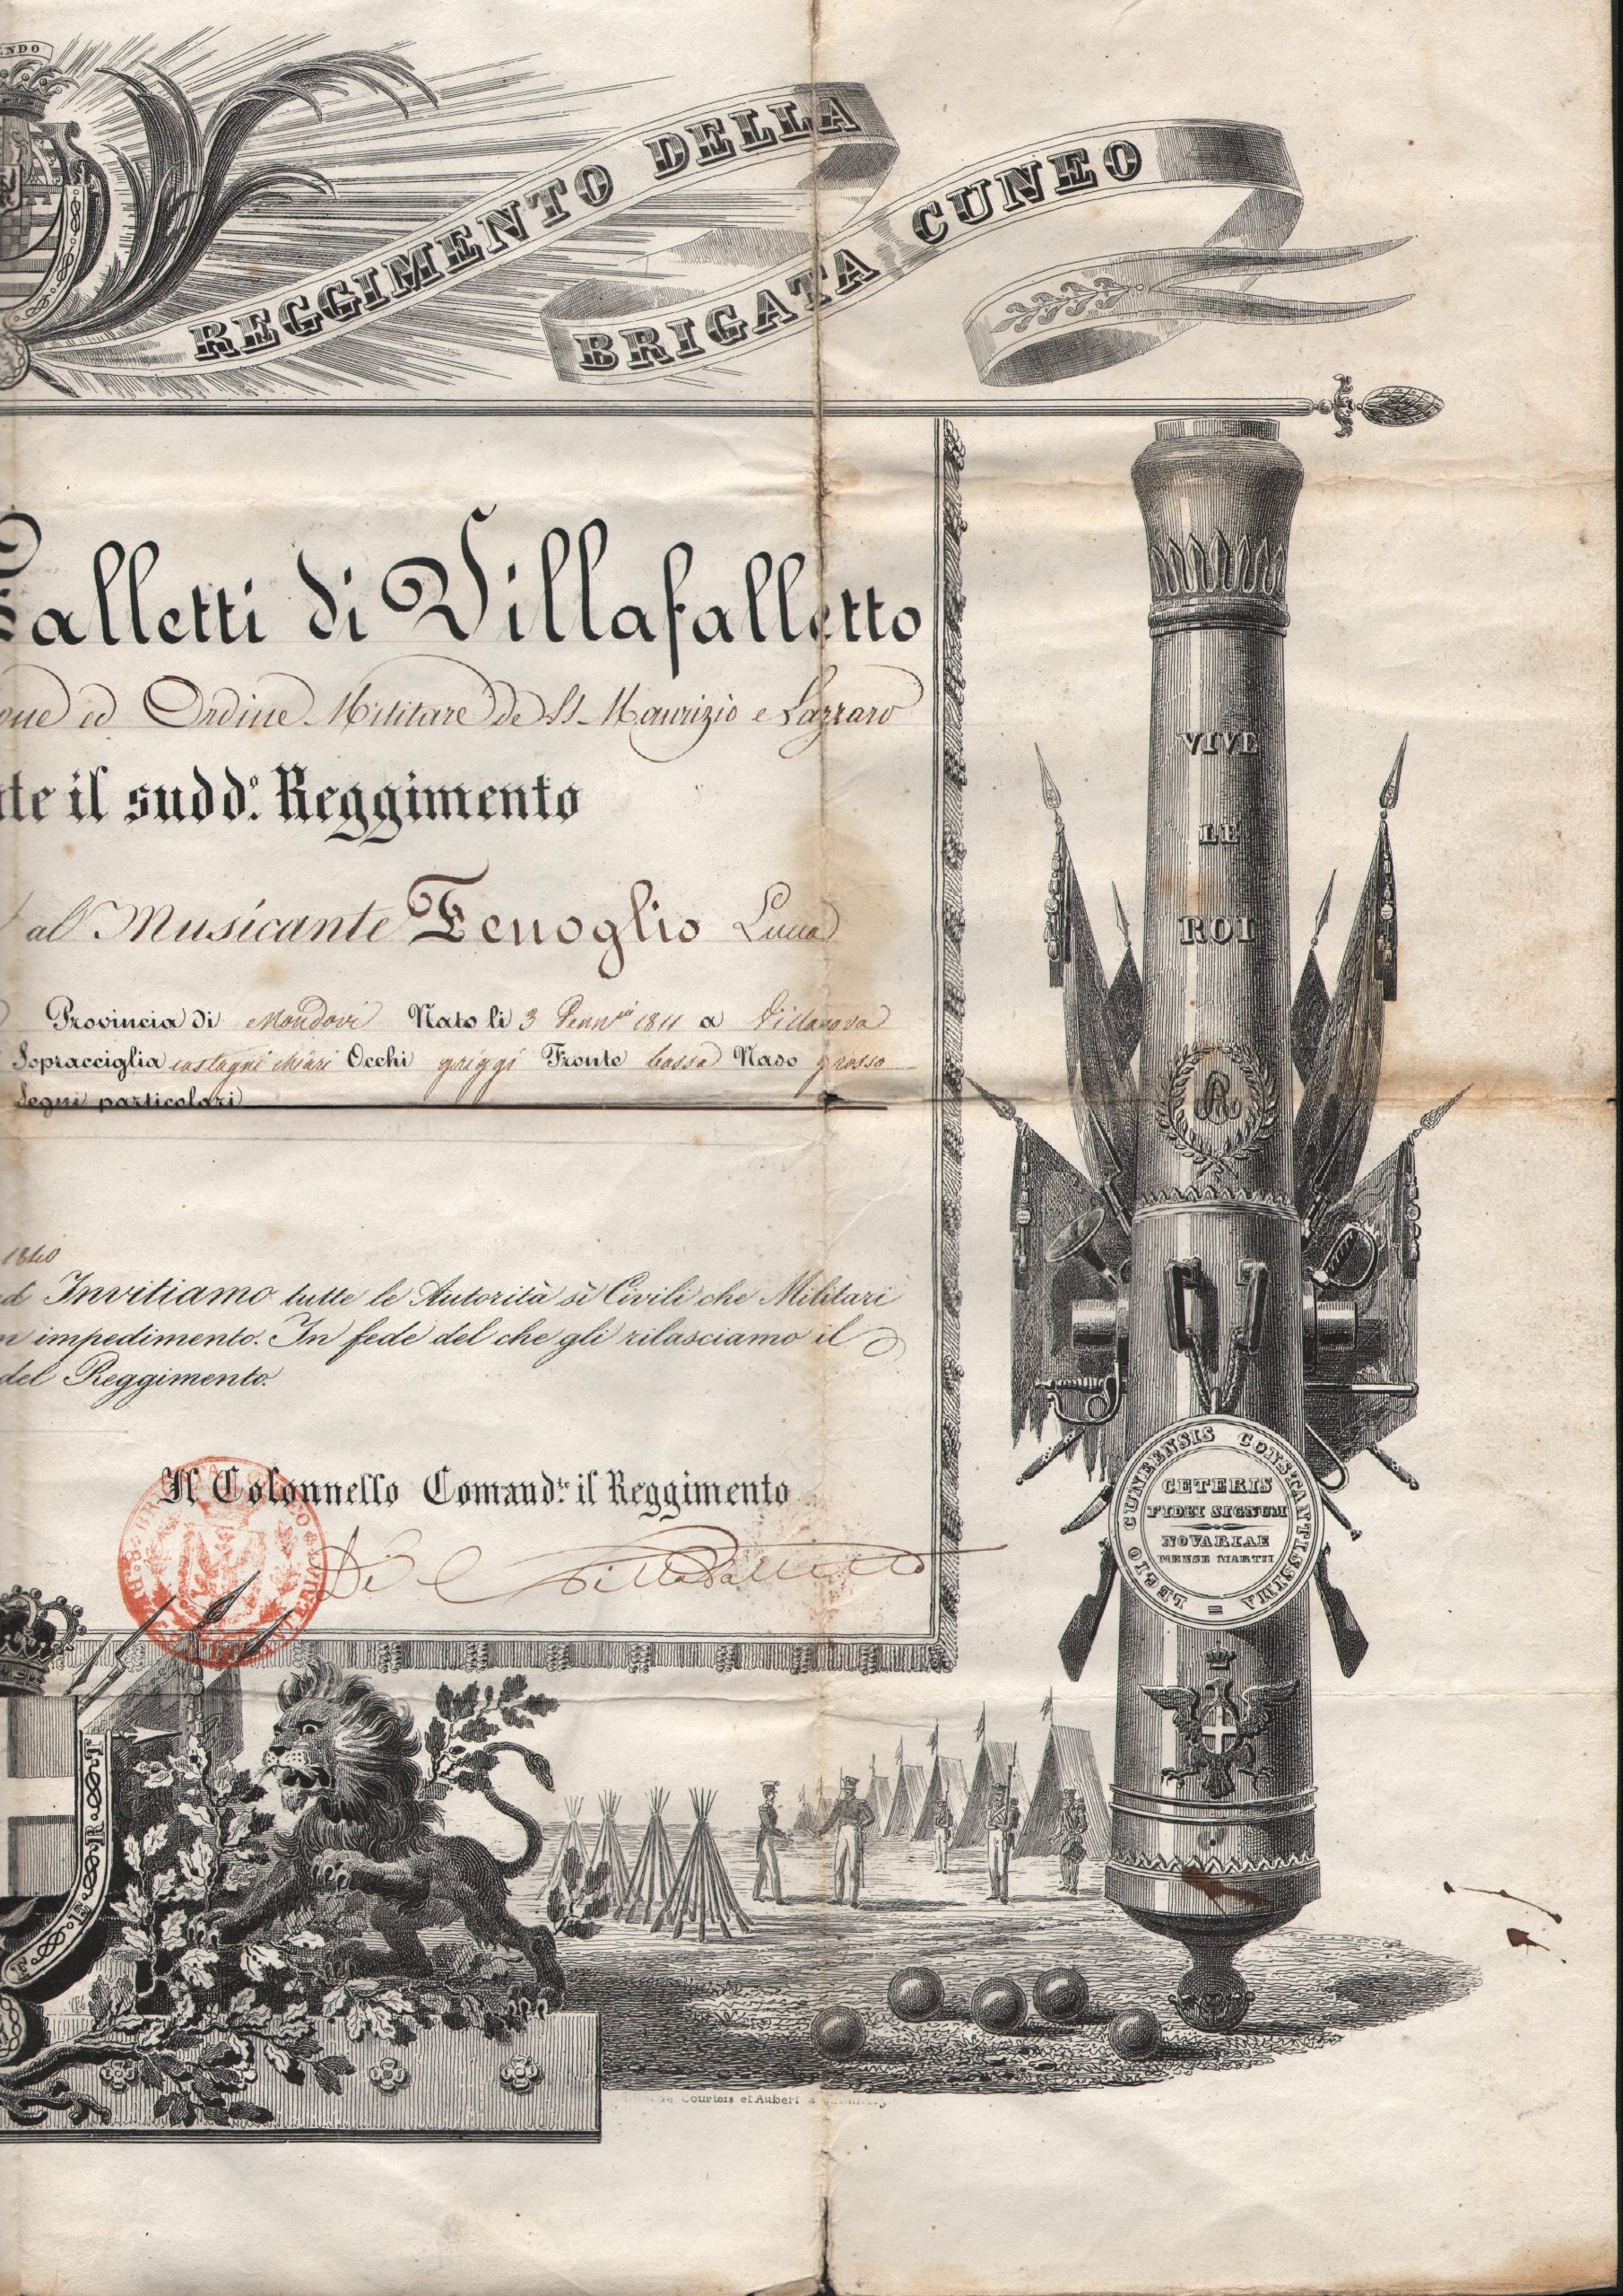 ENDO
REGGIMENTO DELLA
BRIGATA CUNEO
alletti di Villafalletto
ed Ordine Militare de SS. Maurizio e Lazzaro
te il sudd.o Reggimento
al Musicante Fenoglio Luca
Provincia di Mondovi Nato li 3 Genn.io 1811 a Villanova
Sopracciglia castagni chiari Occhi griggi Fronte bassa Naso grosso
Segni particolari
1840
ed Invitiamo tutte le Autorità sì Civili che Militari
n impedimento. In fede del che gli rilasciamo il
del Reggimento.
Il Colonnello Comand.te il Reggimento
Di Villafalletto
VIVE
LE
ROI
CUNEENSIS CONSTANTISSIMA = LEGIO
CETERIS
FIDEI SIGNUM
NOVARIAE
MENSE MARTII
F.E.R.T
de Courtois et Aubert a